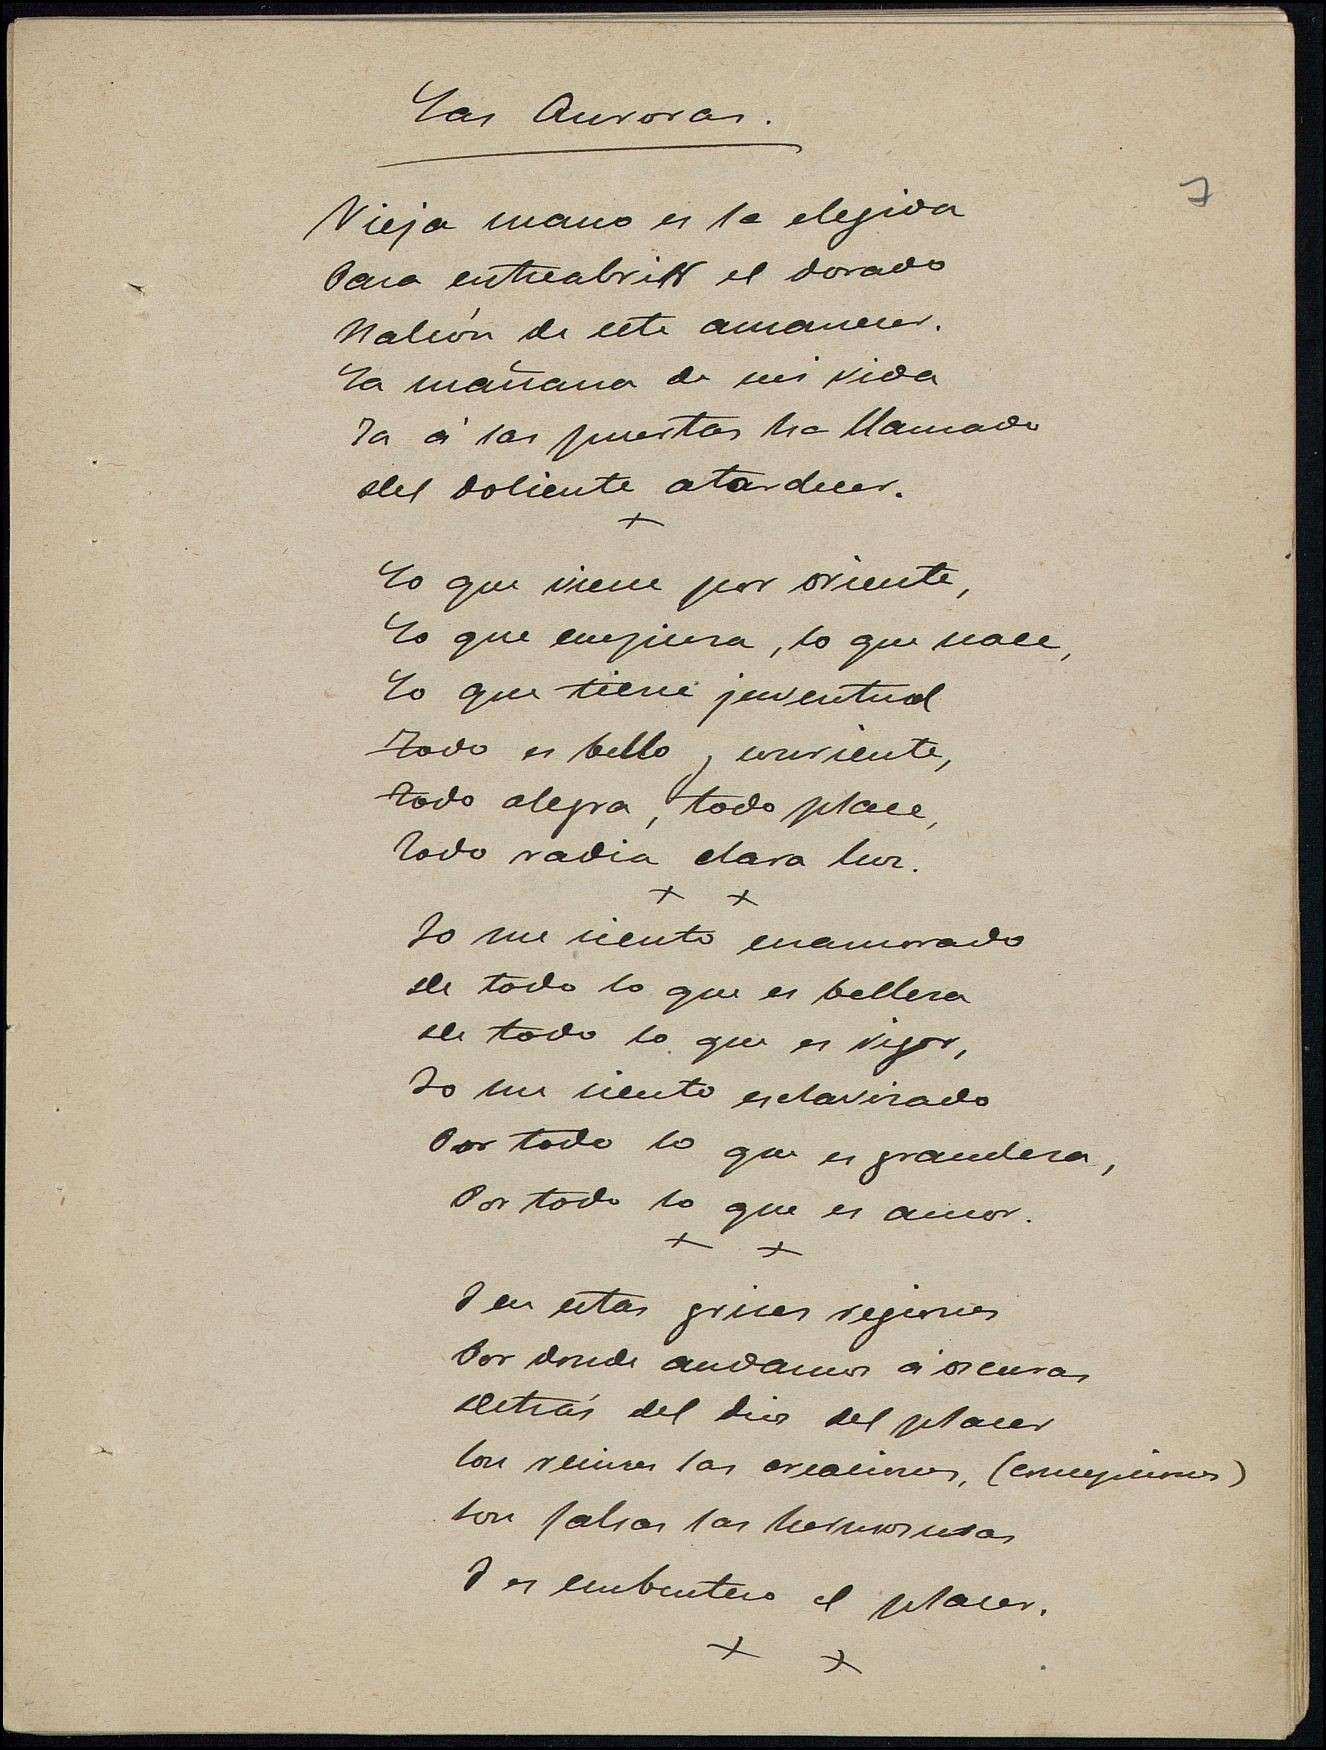 Las Auroras.
7
Vieja mano es la elegida
Para entreabrir el dorado
Balcón de este amanecer.
La mañana de mi vida
Ya á las puertas ha llamado
del doliente atardecer.
+
Lo que viene por oriente,
Lo que empieza, lo que nace,
Lo que tiene juventud
Todo es bello y sonriente,
Todo alegra, todo place,
Todo radia clara luz.
+ +
Yo me siento enamorado
De todo lo que es belleza
de todo lo que es vigor,
Yo me siento esclavizado
Por todo lo que es grandeza,
Por todo lo que es amor.
+ +
Y en estas grises regiones
Por donde andamos á oscuras
Detrás del dios del placer
Son las creaciones, (concepciones)
Son falsas las hermosuras
Y es embustero el placer.
+ +